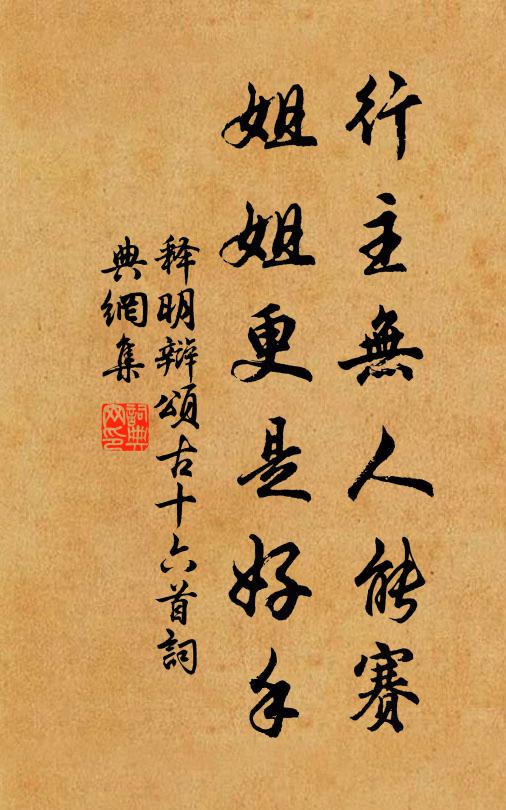 行主無人能賽
姐姐更是好手
释明辯頌古十六首詞
典網集
詞典
网印